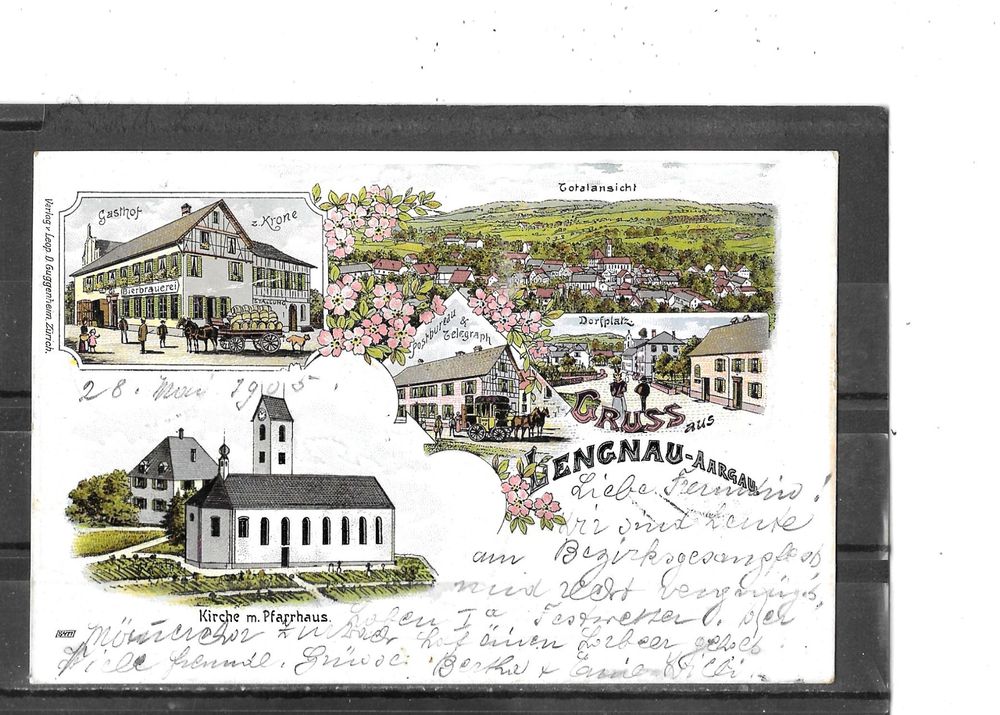 Gasthof z. Krone
Bierbrauerei
STALLUNG
Verlag v. Leop. D. Guggenheim, Zürich.
Totalansicht
Postbureau & Telegraph
Dorfplatz
GRUSS aus
LENGNAU-AARGAU
Kirche m. Pfarrhaus.
28. Mai 1905.
Liebe !
Wir sind heute
am Bezirksgesangfest
und recht vergnügt
haben Ia Festwetter. Der
Männerchor hat einen Lorbeer geholt.
Viele freundl. Grüsse: Bertha &